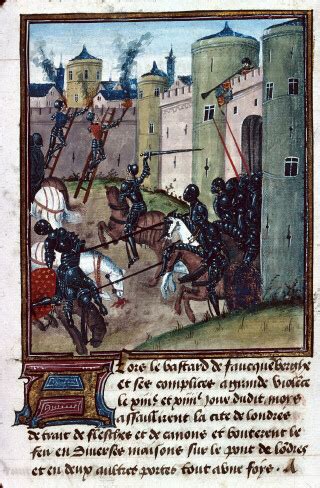 Lors le bastard de faucquenberghe
et ses complices a grande violēce
le xiiiᵉ et xiiiiᵉ Jour dudit moys
assaillirent la cite de londres
de trait de flesches et de canons et bouterent le
feu en diverses maisons sur le pont de lōdres
et en deux aultres portes tout a une foys. A